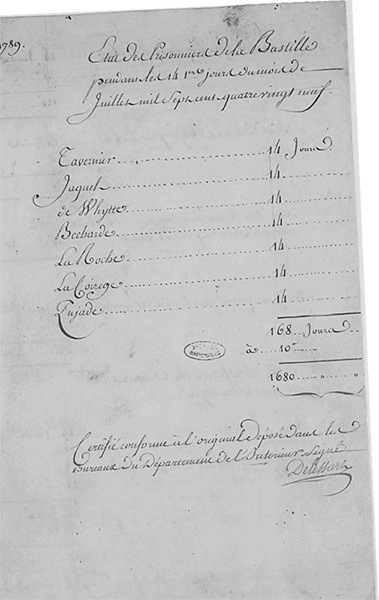 1789.
Etat des Prisonniers de la Bastille
pendant les 14 1ers jours du mois de
Juillet mil Sept cens quatre vingt neuf.
Tavernier 14 Jours
Jaquet 14
de Whytte 14
Bechade 14
La Roche 14
La Corege 14
Pujade 14
168 Jours
à 10
1680 " "
ARCHIVES
NATIONALES
Certifié conforme à l'original déposé dans les
bureaux du Département de l'Intérieur Signé
Delessart